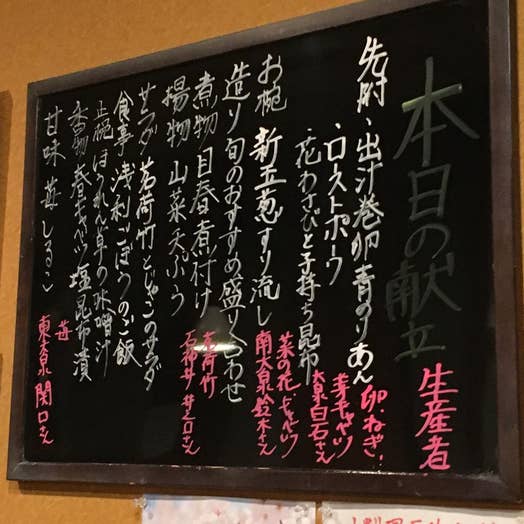 本日の献立
生産者
先附・出汁巻卵青のりあん
・ローストポーク
・花わさびと子持ち昆布
卵、ねぎ、
芽キャベツ
大泉白石さん
お椀 新玉葱すり流し
菜の花、キャベツ
南大泉鈴木さん
造り 旬のおすすめ盛り合わせ
煮物 目春煮付け
揚物 山菜天ぷら
茗荷竹
石神井 井之口さん
サラダ 茗荷竹とじゃこのサラダ
食事 浅利ごぼうのご飯
止椀 ほうれん草の味噌汁
香物 春キャベツ塩昆布漬
甘味 苺しるこ
苺
東大泉 関口さん